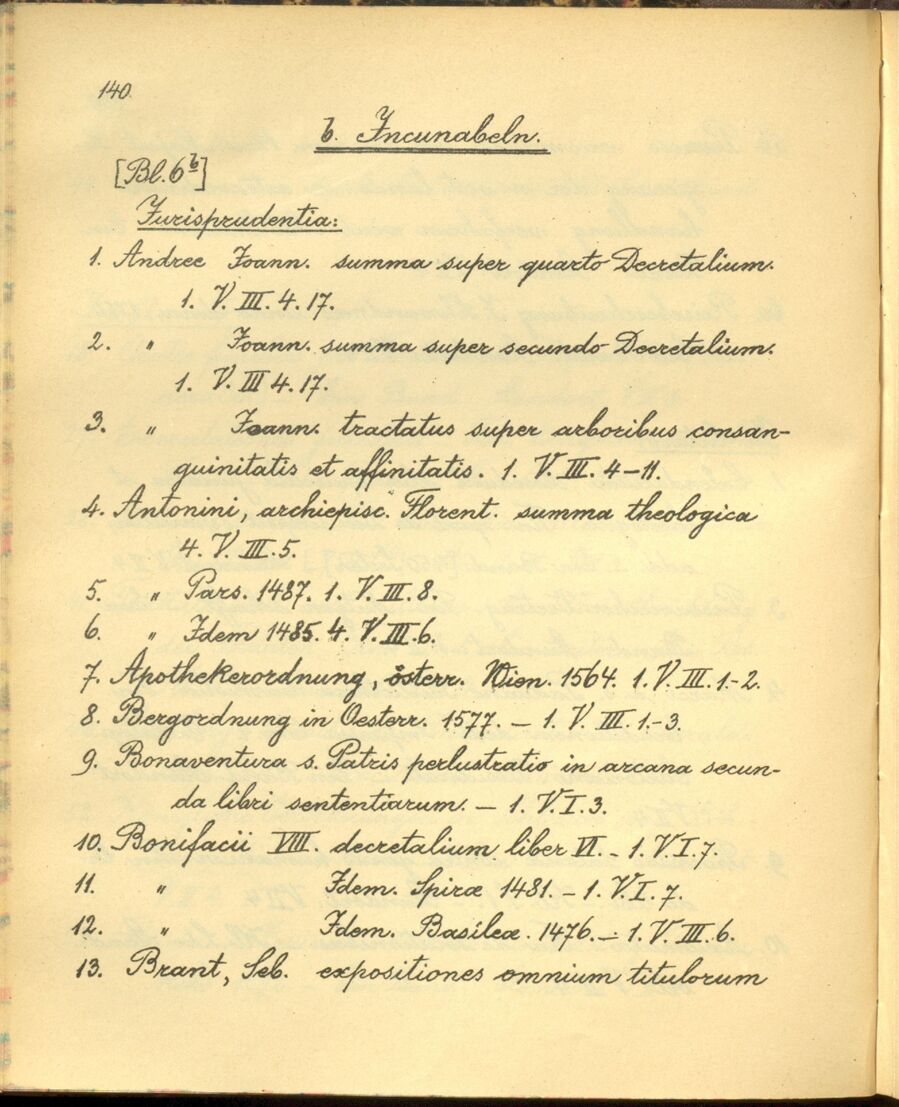 140.
b. Incunabeln.
[Bl. 6b]
Jurisprudentia:
1. Andree Joann. summa super quarto Decretalium.
1. V. III. 4. 17.
2. " Joann. summa super secundo Decretalium.
1. V. III 4. 17.
3. " Joann. tractatus super arboribus consan-
guinitatis et affinitatis. 1. V. III. 4-11.
4. Antonini, archiepisc. Florent. summa theologica
4. V. III. 5.
5. " Pars. 1487. 1. V. III. 8.
6. " Idem 1485. 4. V. III. 6.
7. Apothekerordnung, österr. Wien. 1564. 1. V. III. 1.-2.
8. Bergordnung in Oesterr. 1577. – 1. V. III. 1.-3.
9. Bonaventura s. Patris perlustratio in arcana secun-
da libri sententiarum. – 1. V. I. 3.
10. Bonifacii VIII. decretalium liber VI. – 1. V. I. 7.
11. " Idem. Spiræ 1481. – 1. V. I. 7.
12. " Idem. Basileæ. 1476. – 1. V. III. 6.
13. Brant, Seb. expositiones omnium titulorum